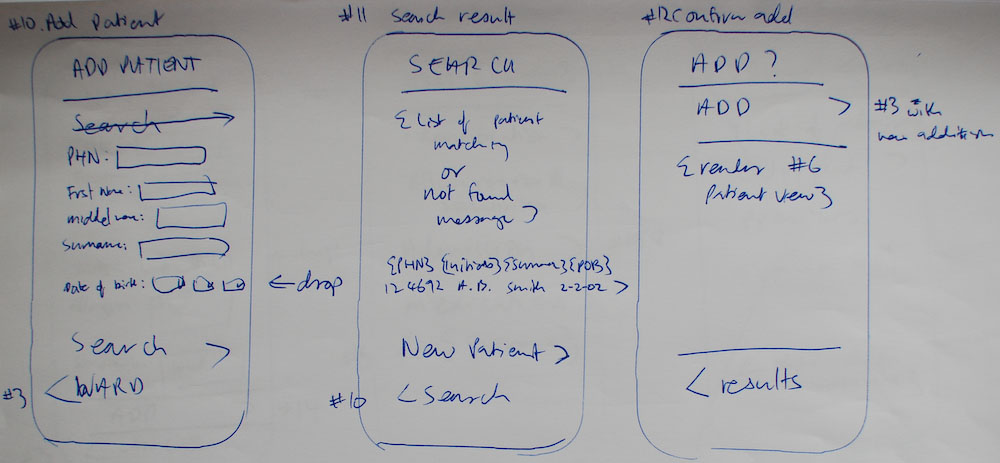 #10. Add Patient
ADD PATIENT
Search
PHN:
First Name:
middle name:
Surname:
Date of birth:
<- drop
Search >
#3 < WARD
#11 Search result
SEARCH
{ List of patient
matching
or
not found
message }
{PHN} {Initials} {Surname} {DOB}
124692 A.B. Smith 2-2-02 >
New Patient >
#10 < Search
#12 Confirm add
ADD ?
ADD >
#3 with
new addition
{ render #6
Patient view }
< results